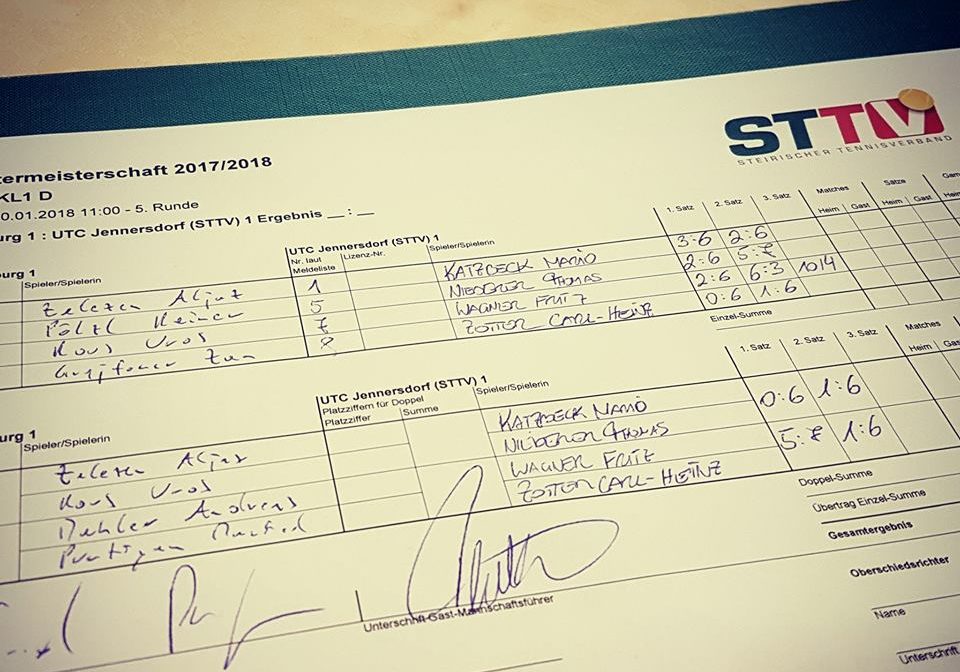 STTV
STEIRISCHER TENNISVERBAND
termeisterschaft 2017/2018
KL1 D
0.01.2018 11:00 - 5. Runde
urg 1 : UTC Jennersdorf (STTV) 1 Ergebnis __ : __
urg 1 UTC Jennersdorf (STTV) 1 1. Satz 2. Satz 3. Satz Matches Sätze Gam
Spieler/Spielerin Nr. laut Meldeliste Lizenz-Nr. Spieler/Spielerin Heim Gast Heim Gast Heim
1 KATZBECK MARIO 3:6 2:6
5 NIEDERER THOMAS 2:6 5:7
Kous Uros 7 WAGNER FRITZ 2:6 6:3 10:4
8 ZOTTER CARL-HEINZ 0:6 1:6
Einzel-Summe
urg 1 UTC Jennersdorf (STTV) 1 1. Satz 2. Satz 3. Satz Matches
Spieler/Spielerin Platzziffern für Doppel Spieler/Spielerin Heim Gas
Platzziffer Summe
KATZBECK MARIO 0:6 1:6
Kous Uros NIEDERER THOMAS
Andreas WAGNER FRITZ 5:7 1:6
ZOTTER CARL-HEINZ
Doppel-Summe
Übertrag Einzel-Summe
Gesamtergebnis
Unterschrift-Gast-Mannschaftsführer
Oberschiedsrichter
Name
Unterschrift